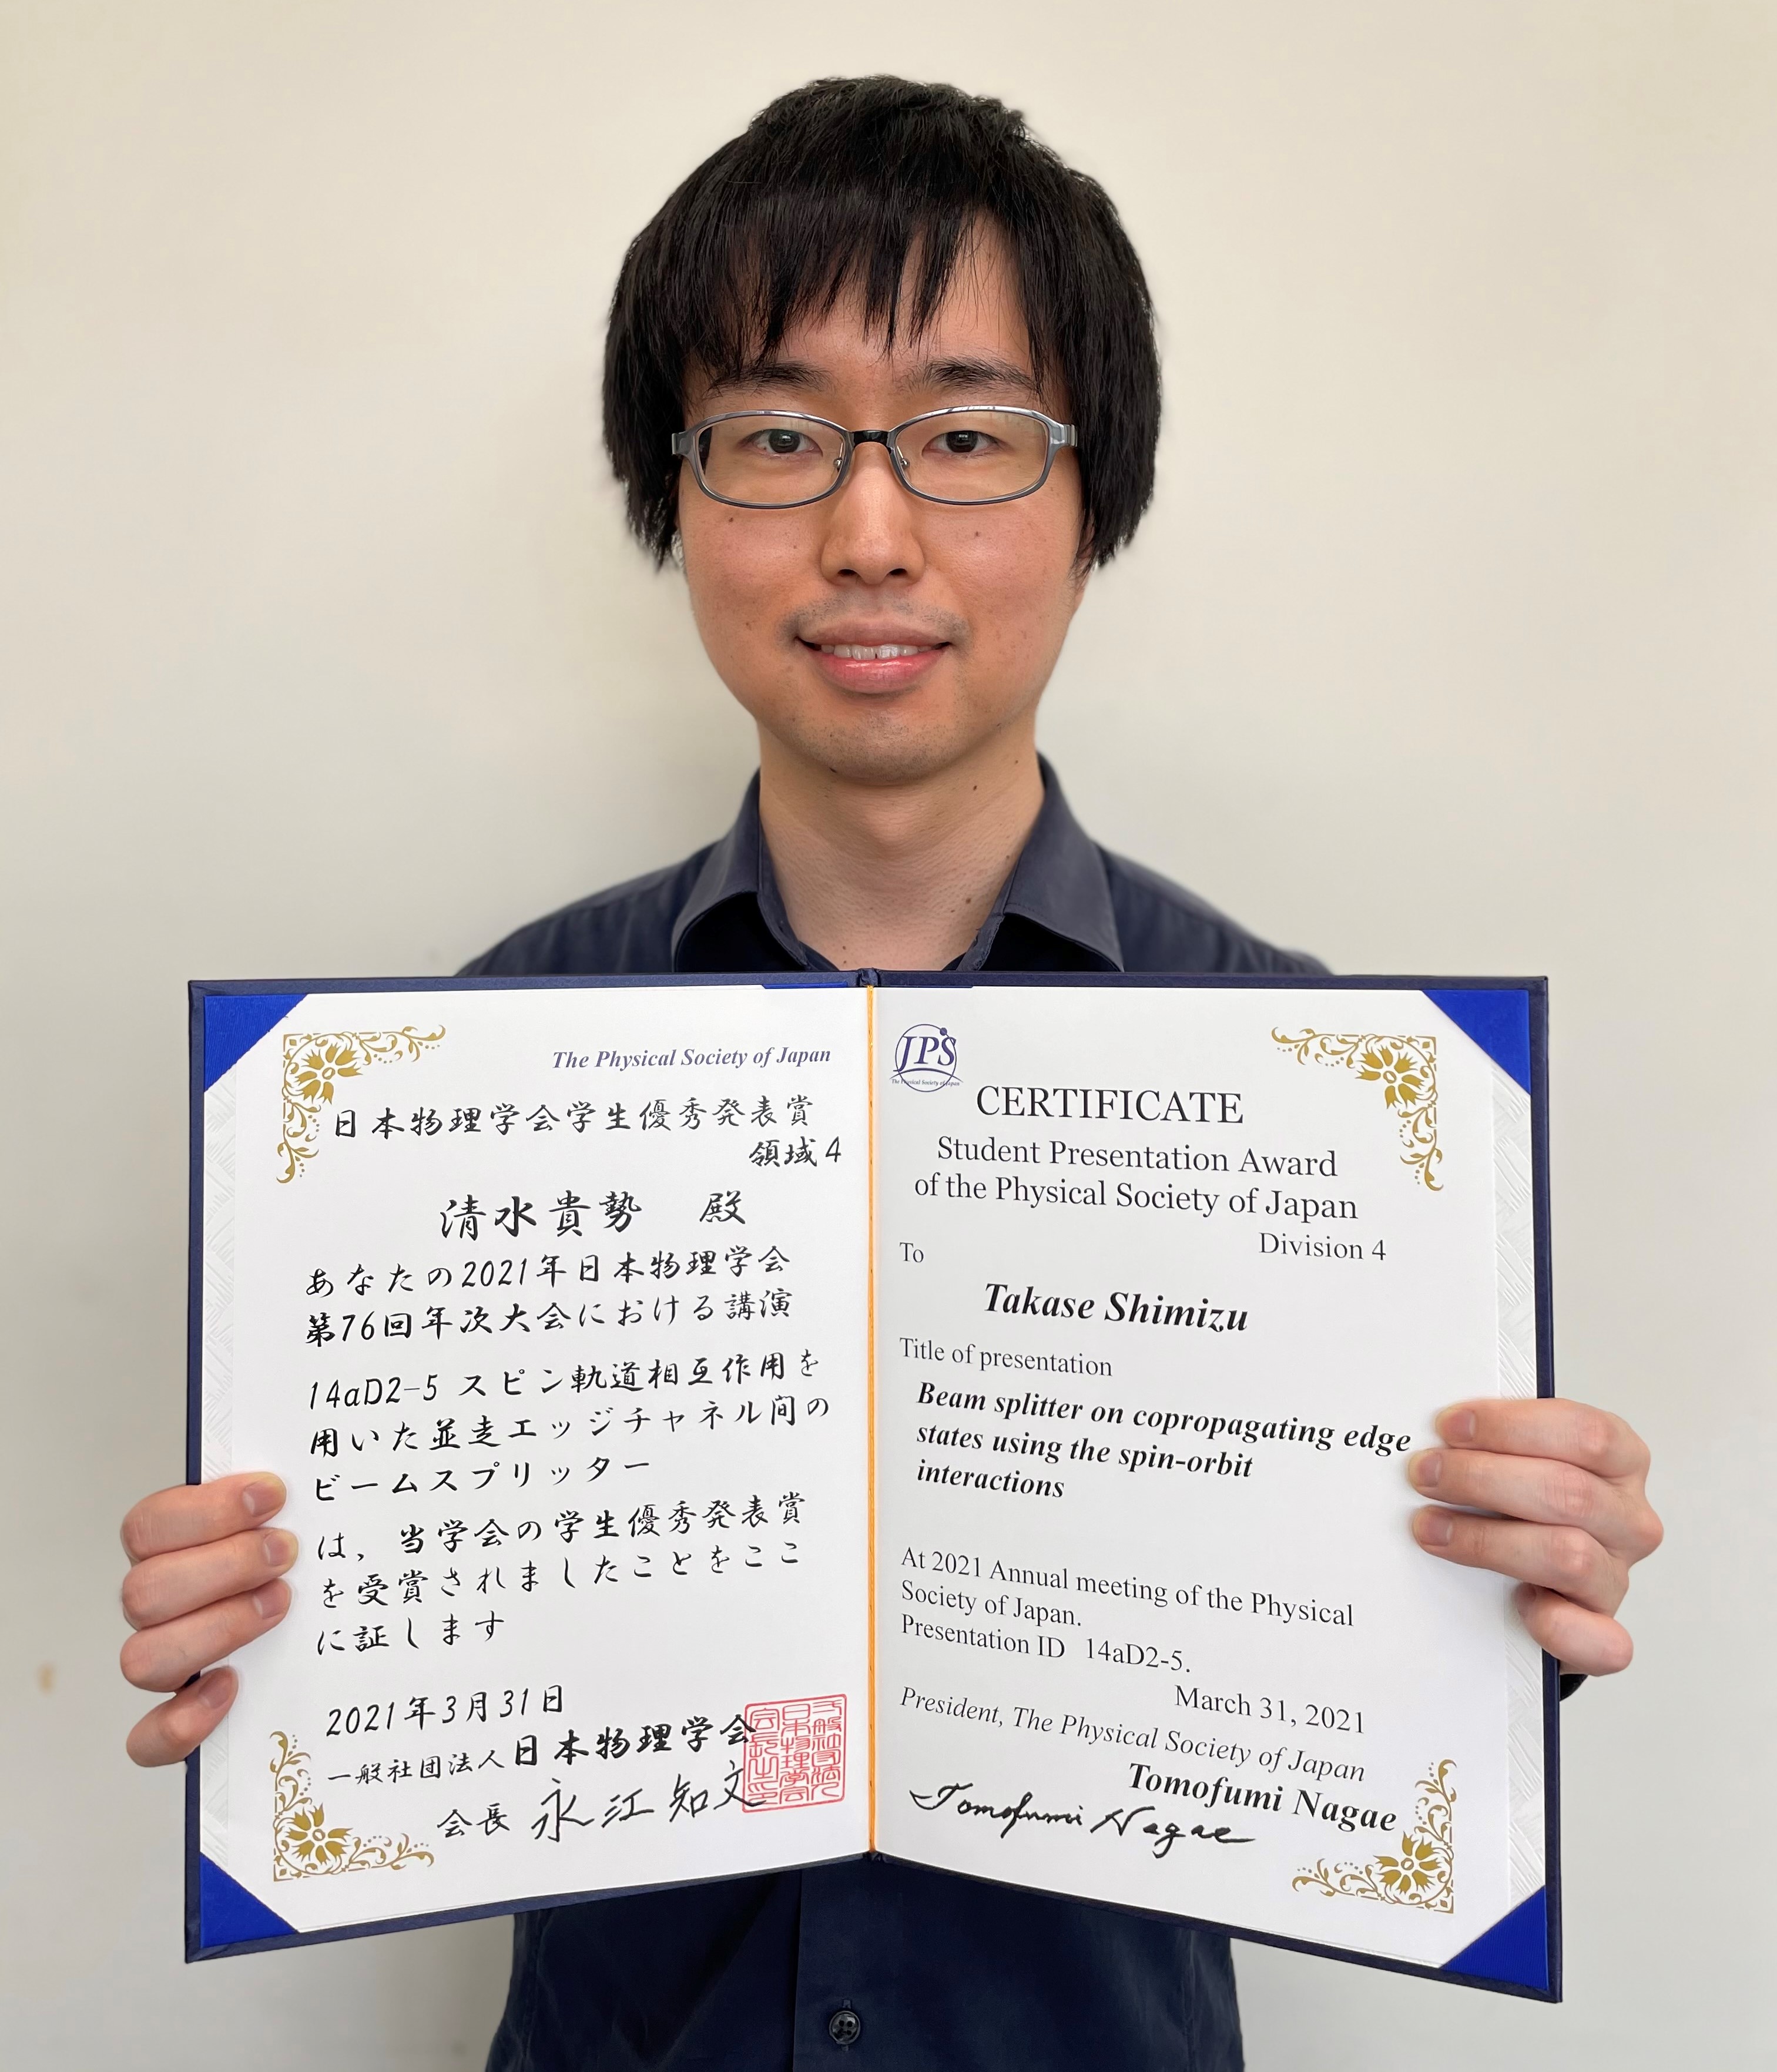 The Physical Society of Japan
日本物理学会学生優秀発表賞
領域4
清水貴勢 殿
あなたの2021年日本物理学会
第76回年次大会における講演
14aD2-5 スピン軌道相互作用を
用いた並走エッジチャネル間の
ビームスプリッター
は，当学会の学生優秀発表賞
を受賞されましたことをここ
に証します
2021年3月31日
一般社団法人日本物理学会
会長 永江知文
JPS
The Physical Society of Japan
CERTIFICATE
Student Presentation Award
of the Physical Society of Japan
Division 4
To
Takase Shimizu
Title of presentation
Beam splitter on copropagating edge
states using the spin-orbit
interactions
At 2021 Annual meeting of the Physical
Society of Japan.
Presentation ID 14aD2-5.
March 31, 2021
President, The Physical Society of Japan
Tomofumi Nagae
Tomofumi Nagae